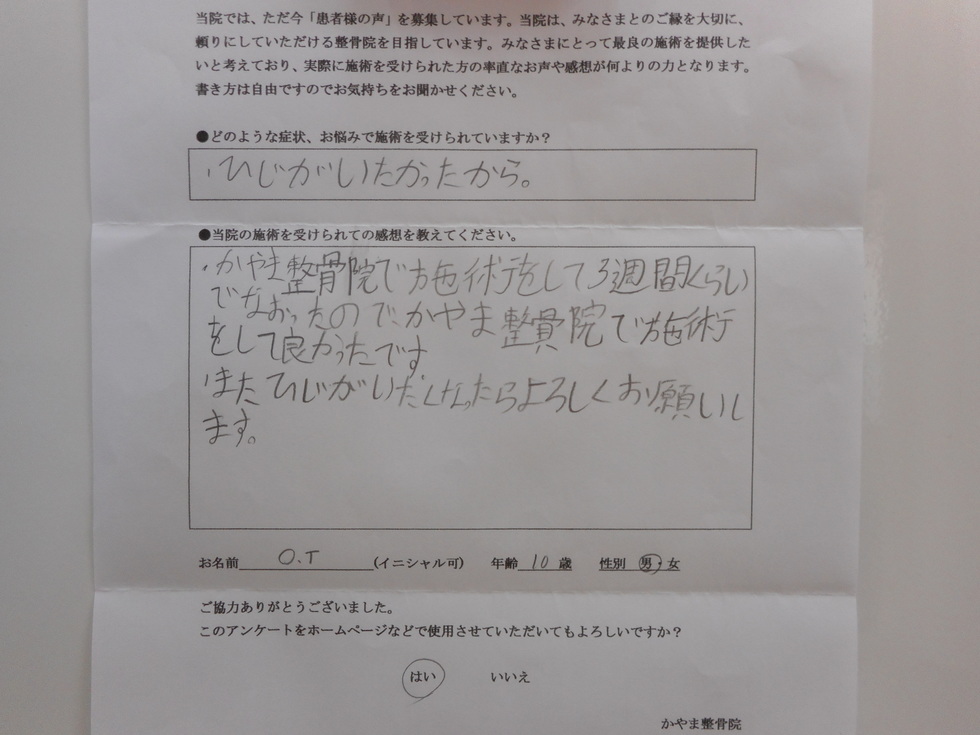 当院では、ただ今「患者様の声」を募集しています。当院は、みなさまとのご縁を大切に、
頼りにしていただける整骨院を目指しています。みなさまにとって最良の施術を提供した
いと考えており、実際に施術を受けられた方の率直なお声や感想が何よりの力となります。
書き方は自由ですのでお気持ちをお聞かせください。
●どのような症状、お悩みで施術を受けられていますか？
・ひじがいたかったから。
●当院の施術を受けられての感想を教えてください。
・かやま整骨院で施術をして3週間くらい
でなおったので、かやま整骨院で施術
をして良かったです。
・またひじがいたくなったらよろしくお願いし
ます。
お名前 O.T (イニシャル可) 年齢 10 歳 性別 男・女
ご協力ありがとうございました。
このアンケートをホームページなどで使用させていただいてもよろしいですか？
はい いいえ
かやま整骨院